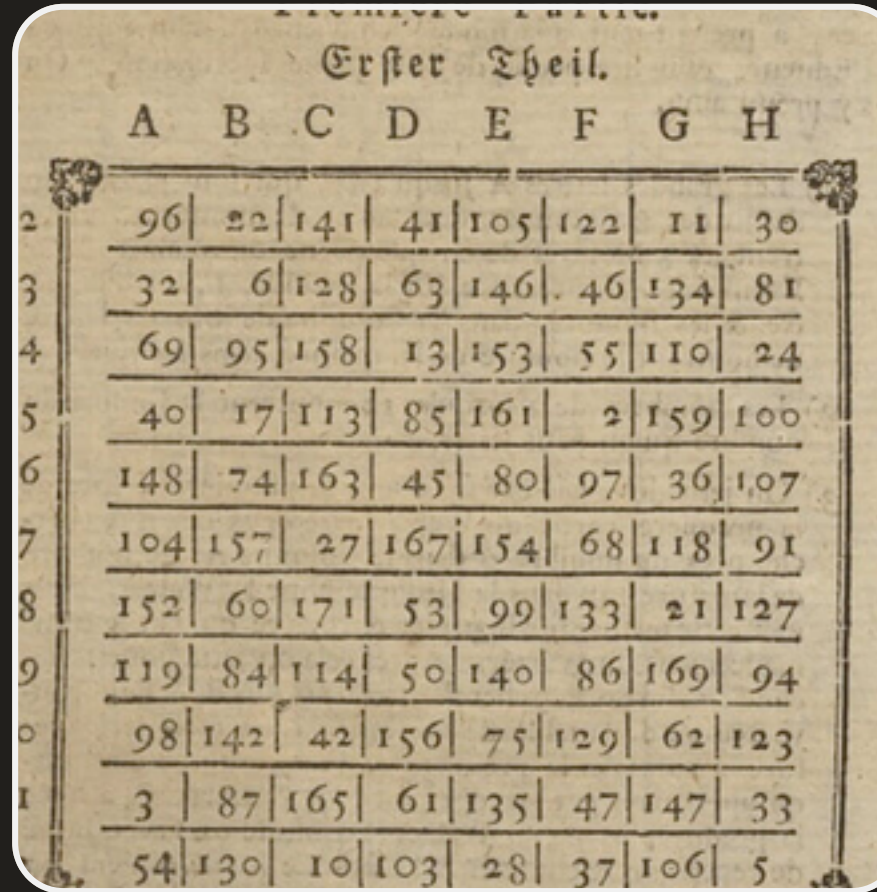 Premiere Partie.
Erster Theil.
A B C D E F G H
2 96 22 141 41 105 122 11 30
3 32 6 128 63 146 46 134 81
4 69 95 158 13 153 55 110 24
5 40 17 113 85 161 2 159 100
6 148 74 163 45 80 97 36 107
7 104 157 27 167 154 68 118 91
8 152 60 171 53 99 133 21 127
9 119 84 114 50 140 86 169 94
0 98 142 42 156 75 129 62 123
1 3 87 165 61 135 47 147 33
54 130 10 103 28 37 106 5